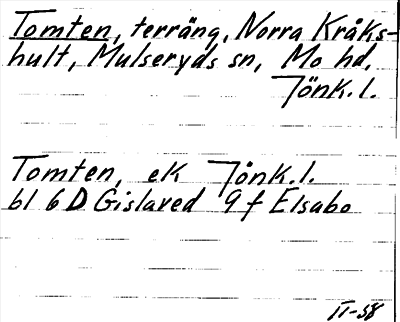 Tomten, terräng, Norra Kråks-
hult, Mulseryds sn, Mo hd,
Jönk. l.
Tomten, ek Jönk. l.
bl 6 D Gislaved 9 f Elsabo
II-58